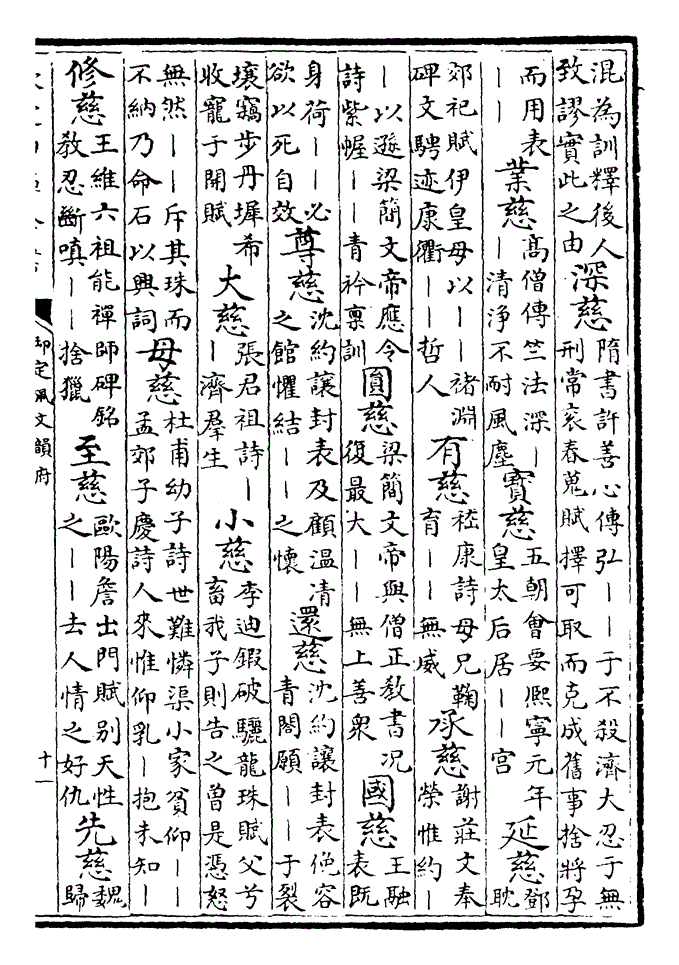 混為訓釋後人致謬實此之由深慈隋書許善心傳弘丨丨于不殺濟大忍于無刑常哀春蒐賦擇可取而克成舊事捨將孕
而用表丨丨業慈高僧傳竺法深丨丨清淨不耐風塵寳慈五朝會要熙寧元年皇太后居丨丨宮延慈鄧耽
郊祀賦伊皇母以丨丨褚淵碑文騁迹康衢丨丨哲人有慈嵇康詩母兄鞠育丨丨無威承慈謝莊文奉榮惟約丨
丨以遜梁簡文帝應令詩紫幄丨丨青衿禀訓圓慈梁簡文帝與僧正教書况復最大丨丨無上善衆國慈王融表既
身荷丨丨必欲以死自效尊慈沈約讓封表及顧温凊之館懼結丨丨之懷還慈沈約讓封表俛容青閣願丨丨于裂
壤竊步丹墀希收寵于開賦大慈張君祖詩丨丨濟羣生小慈李迪鍜破驪龍珠賦父兮畜我子則告之曾是憑怒
無然丨丨斥其珠而不納乃命石以興詞母慈杜甫幼子詩世難憐渠小家貧仰丨丨孟郊子慶詩人來惟仰乳丨抱未知丨
修慈王維六祖能禪師碑銘教忍斷嗔丨丨捨獵至慈歐陽詹出門賦别天性之丨丨去人情之好仇先慈魏歸
御定佩文韻府
十一